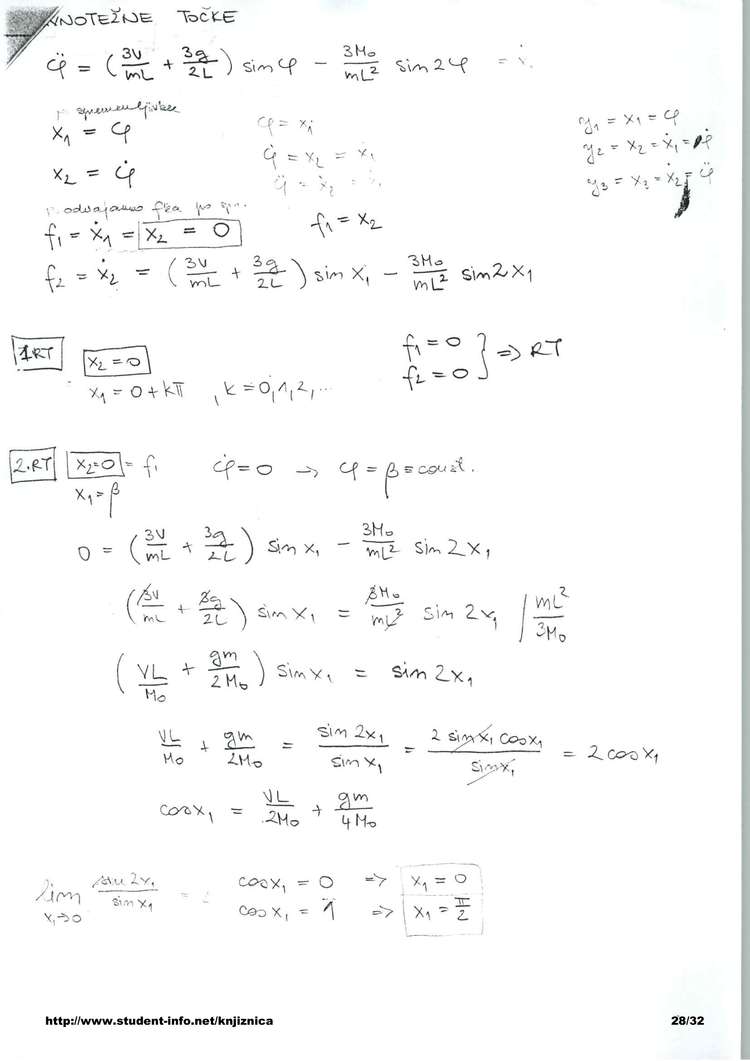 VNOTEŽNE TOČKE
φ̈ = (3V/mL + 3g/2L) sin φ − 3M₀/mL² sin 2φ =
spremenljivke
x₁ = φ φ = x₁ y₁ = x₁ = φ
x₂ = φ̇ φ̇ = x₂ = ẋ₁ y₂ = x₂ = ẋ₁ = φ̇
φ̈ = ẋ₂ = y₃ = x₃ = ẋ₂ = φ̈
odvajamo fka po spr.
f₁ = ẋ₁ = x₂ = 0 f₁ = x₂
f₂ = ẋ₂ = (3V/mL + 3g/2L) sin x₁ − 3M₀/mL² sin 2x₁
1RT x₂ = 0 f₁ = 0
f₂ = 0 } ⇒ RT
x₁ = 0 + kπ , k = 0, 1, 2, ...
2.RT x₂ = 0 = f₁ φ̇ = 0 → φ = β = const.
x₁ = β
0 = (3V/mL + 3g/2L) sin x₁ − 3M₀/mL² sin 2x₁
(3V/mL + 3g/2L) sin x₁ = 3M₀/mL² sin 2x₁ / mL²/3M₀
(VL/M₀ + gm/2M₀) sin x₁ = sin 2x₁
VL/M₀ + gm/2M₀ = sin 2x₁/sin x₁ = 2 sin x₁ cos x₁/sin x₁ = 2 cos x₁
cos x₁ = VL/2M₀ + gm/4M₀
lim x₁→0 sin 2x₁/sin x₁ = cos x₁ = 0 ⇒ x₁ = 0
cos x₁ = 1 ⇒ x₁ = π/2
http://www.student-info.net/knjiznica 28/32